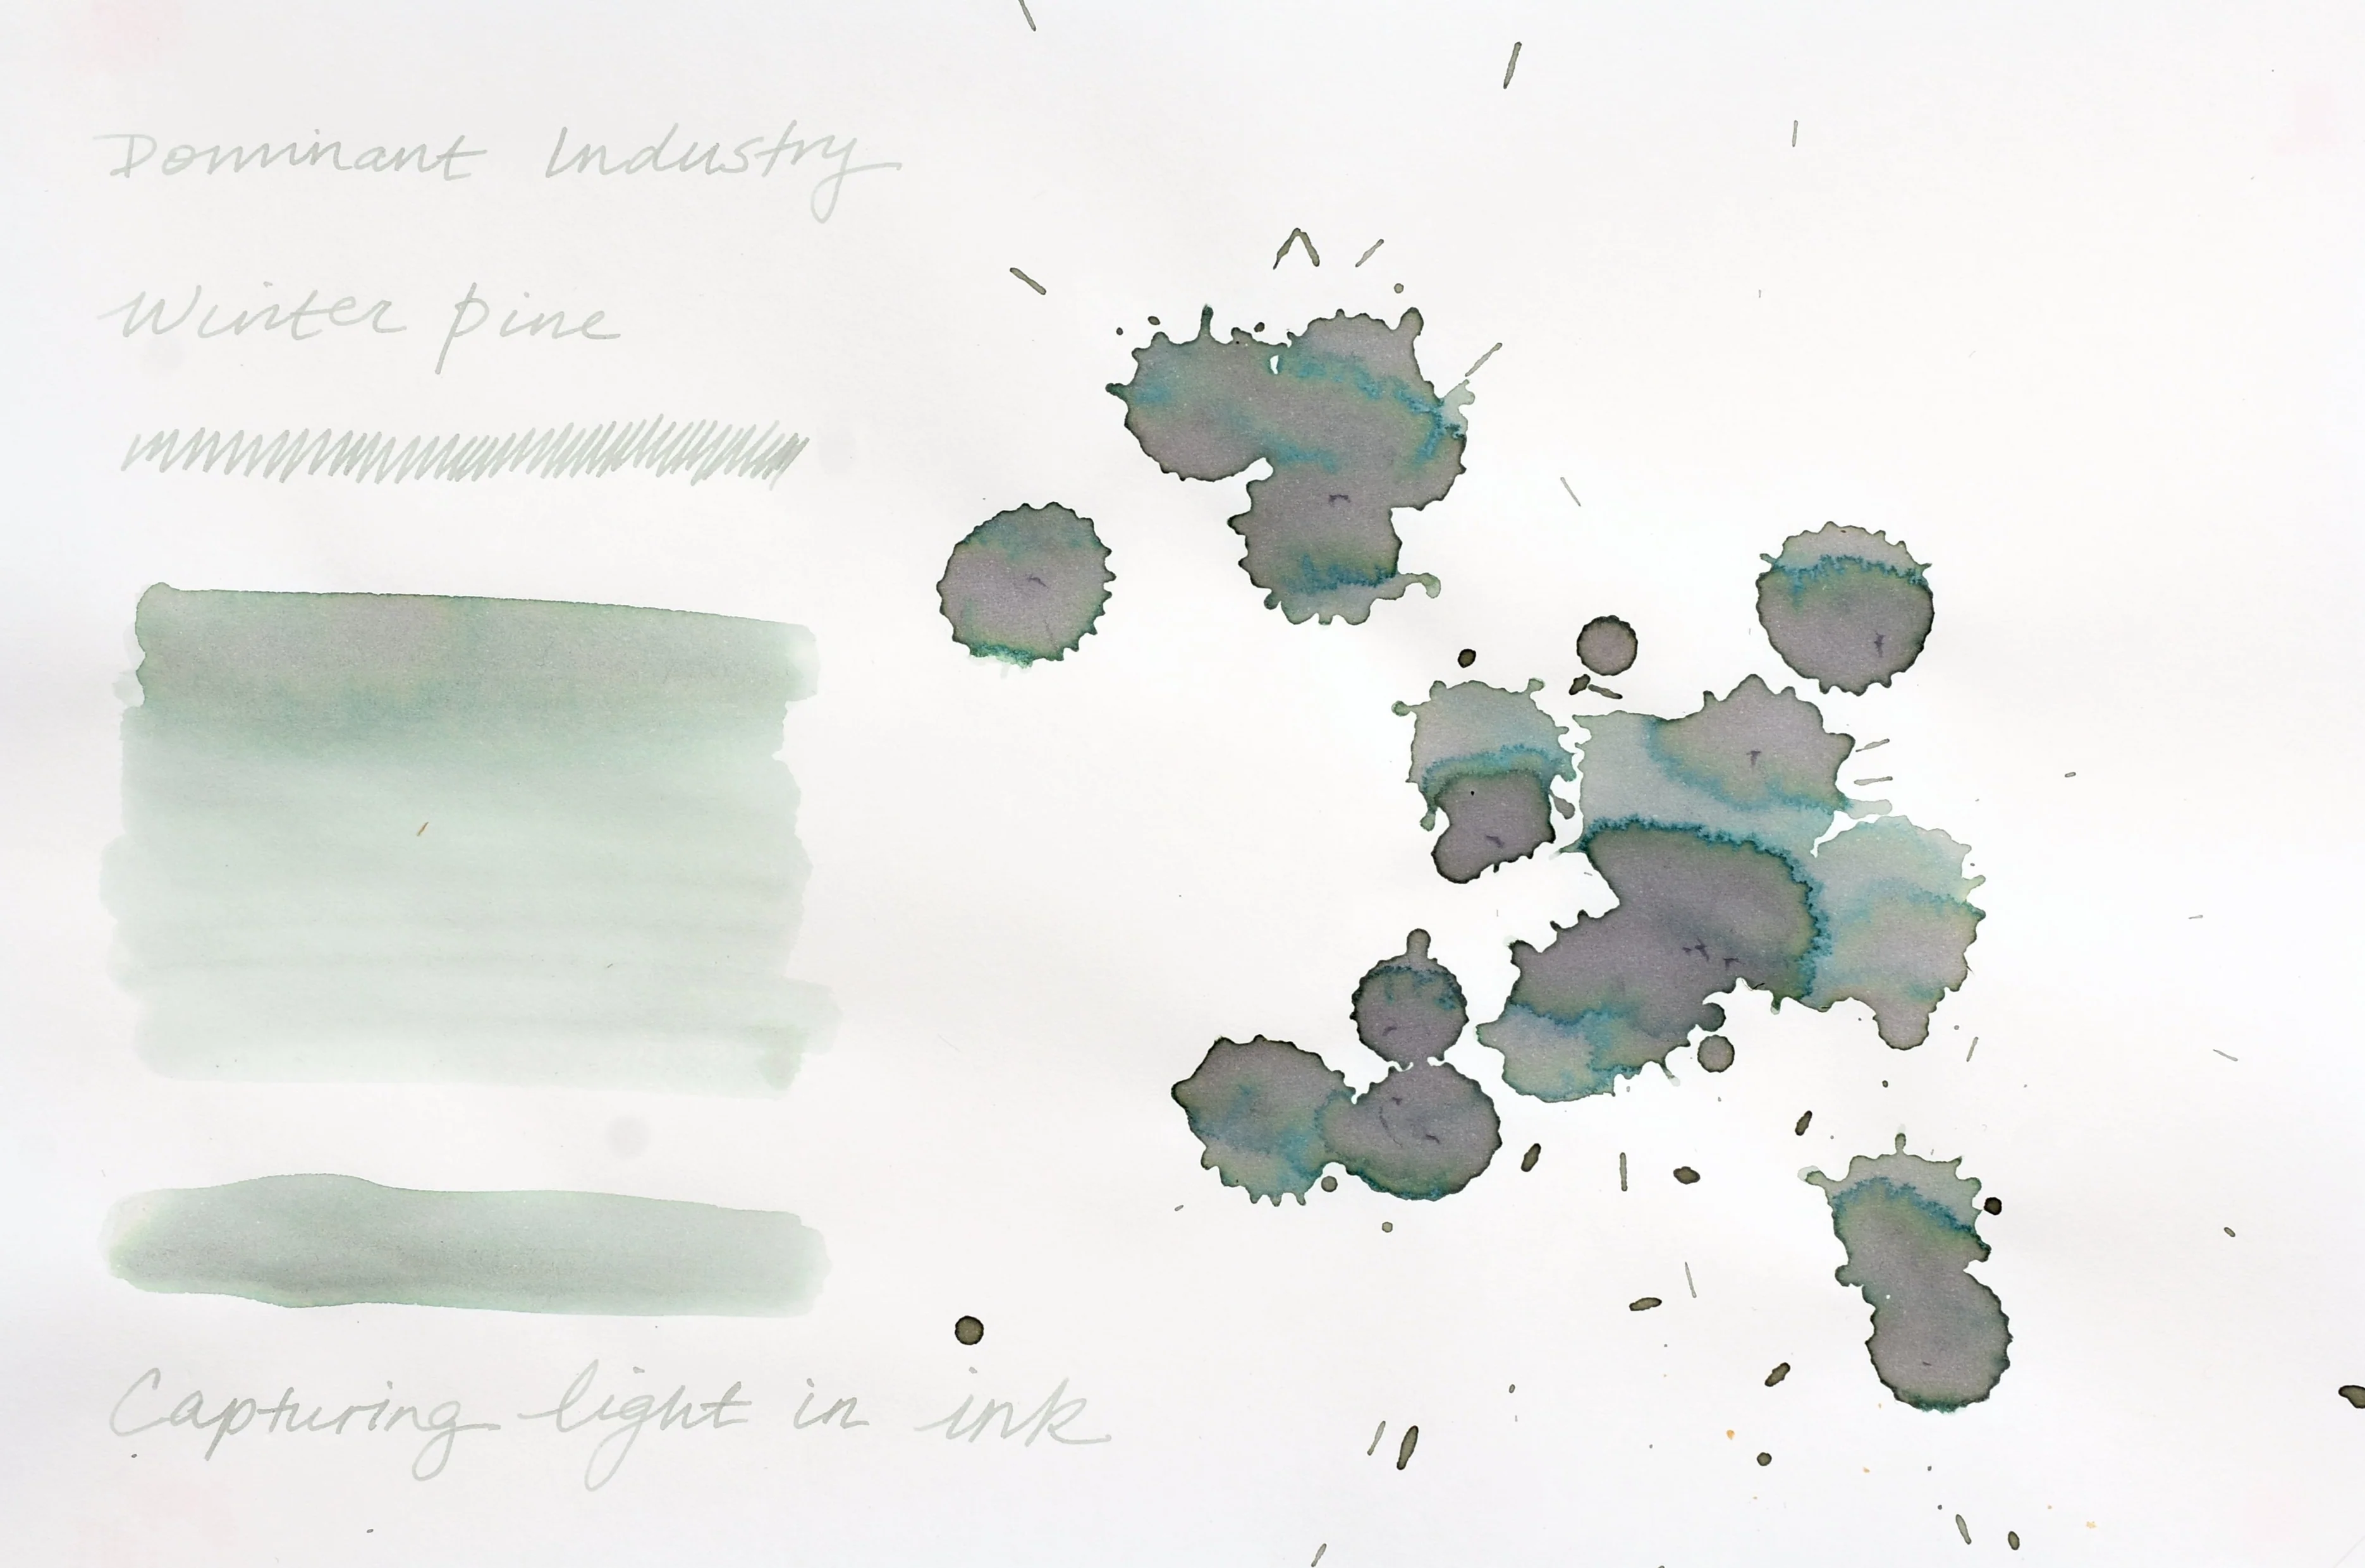 Dominant Industry
Winter pine
Capturing light in ink